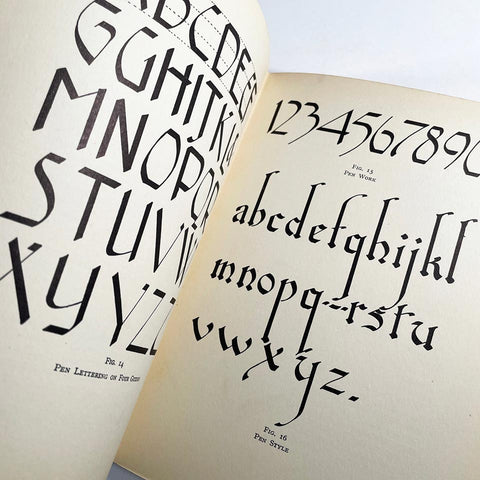 ABCDEF
GGHIJKL
MNOPQR
STUVW
XYYZZ
Fig. 14
Pen Lettering on Four Guide
1234567890
Fig. 15
Pen Work
abcdefghijkl
mnopq-rstu
vwxyz.
Fig. 16
Pen Style